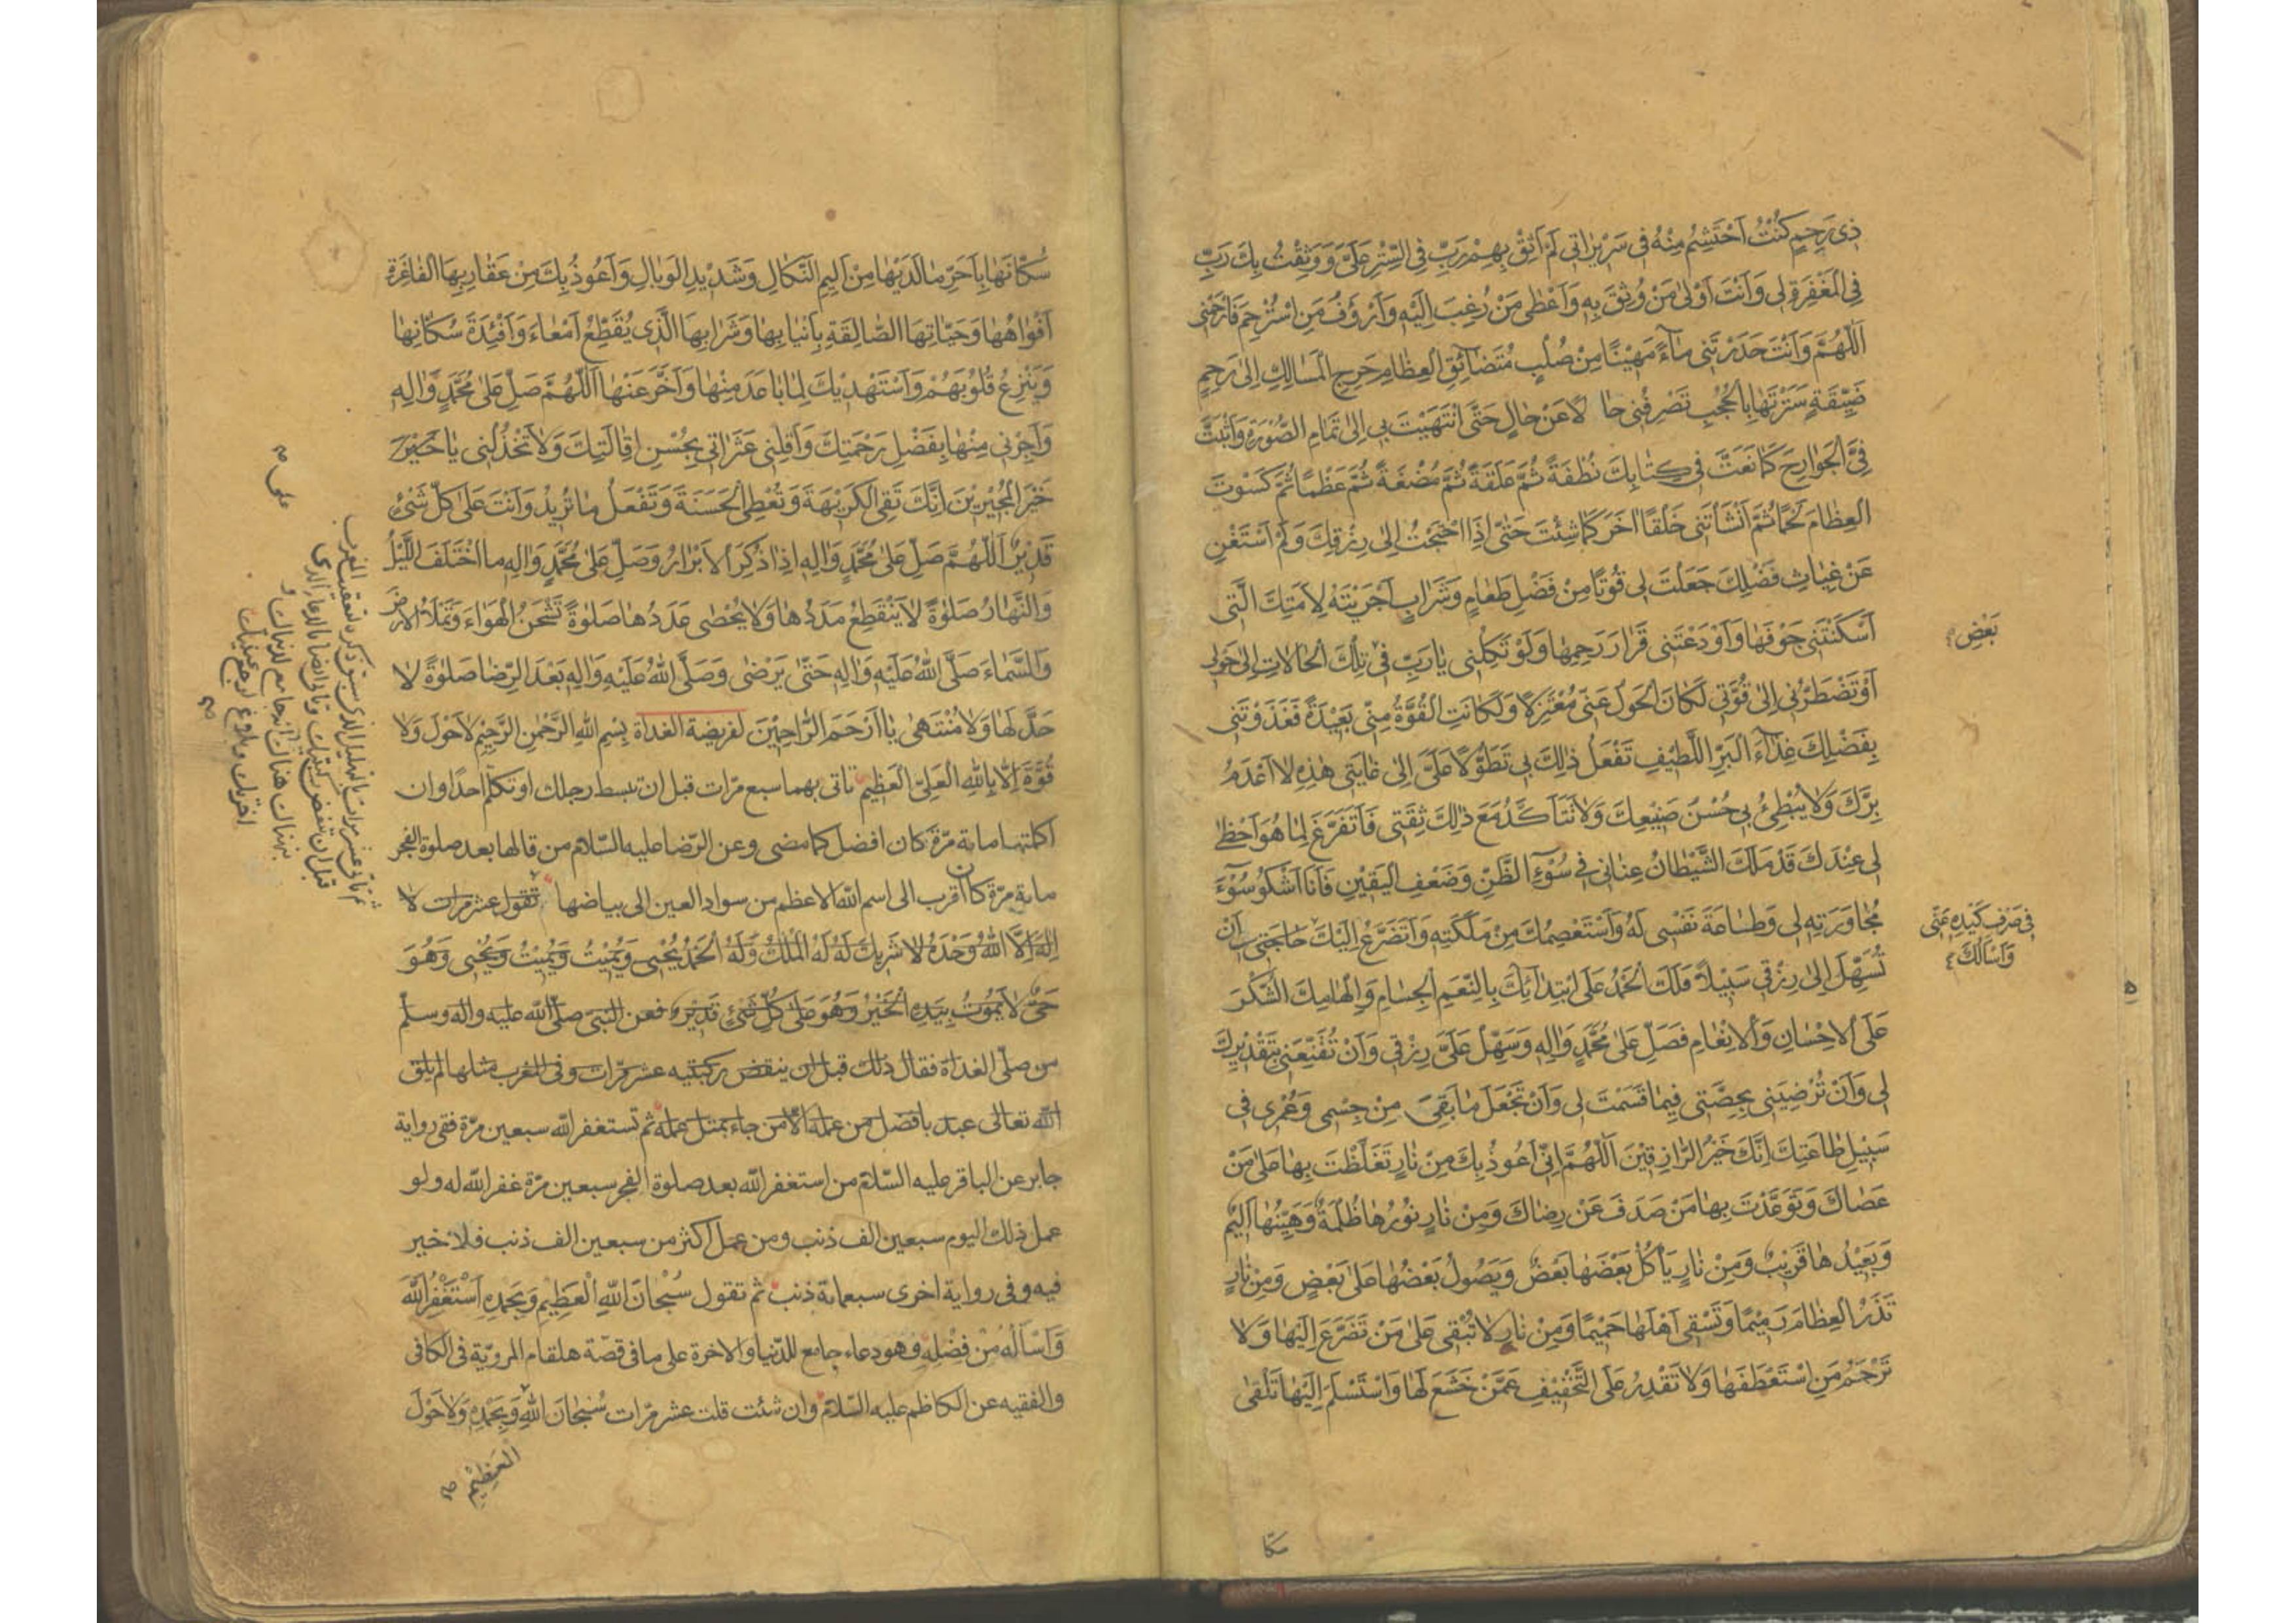 ذِى رَحِمٍ كُنْتُ اَحْتَشِمُ مِنْهُ فى سَرِيرٰاتى لَمْ اَثِقْ بِهِمْ رَبِّ فِى السِّتْرِ عَلَىَّ وَوَثِقْتُ بِكَ رَبِّ
فِى الْمَغْفِرَةِ لى وَاَنْتَ اَوْلىٰ مَنْ وُثِقَ بِهِ وَاَعْطىٰ مَنْ رُغِبَ اِلَيْهِ وَاَرْؤَفُ مَنِ اسْتُرْحِمَ فَارْحَمْنى
اَللّٰهُمَّ وَاَنْتَ حَدَرْتَنى مٰاءً مَهينًا مِنْ صُلْبٍ مُتَضٰائِقِ الْعِظٰامِ حَرِجِ الْمَسٰالِكِ اِلىٰ رَحِمٍ
ضَيِّقَةٍ سَتَرْتَهٰا بِالْحُجُبِ تَصْرِفُنى حٰا لًا عَنْ حٰالٍ حَتَّى انْتَهَيْتَ بى اِلىٰ تَمٰامِ الصُّورَةِ وَاَثْبَتَّ
فِىَّ الْجَوٰارِحَ كَمٰا نَعَتَّ فى كِتٰابِكَ نُطْفَةً ثُمَّ عَلَقَةً ثُمَّ مُضْغَةً ثُمَّ عَظْمًا ثُمَّ كَسَوْتَ
الْعِظٰامَ لَحْمًا ثُمَّ اَنْشَاْتَنى خَلْقًا اٰخَرَ كَمٰا شِئْتَ حَتّٰى اِذَا احْتَجْتُ اِلىٰ رِزْقِكَ وَلَمْ اَسْتَغْنِ
عَنْ غِيٰاثِ فَضْلِكَ جَعَلْتَ لى قُوتًا مِنْ فَضْلِ طَعٰامٍ وَشَرٰابٍ اَجْرَيْتَهُ لِاَمَتِكَ الَّتى
اَسْكَنْتَنى جَوْفَهٰا وَاَوْدَعْتَنى قَرٰارَ رَحِمِهٰا وَلَوْ تَكِلُنى يٰا رَبِّ فى تِلْكَ الْحٰالٰاتِ اِلىٰ حَوْلى
بَعْضِ
اَوْ تَضْطَرُّنى اِلىٰ قُوَّتى لَكٰانَ الْحَوْلُ عَنّى مُعْتَزِلًا وَلَكٰانَتِ الْقُوَّةُ مِنّى بَعيدَةً فَغَذَوْتَنى
بِفَضْلِكَ غِذٰاءَ الْبَرِّ اللَّطيفِ تَفْعَلُ ذٰلِكَ بى تَطَوُّلًا عَلَىَّ اِلىٰ غٰايَتى هٰذِهِ لٰا اَعْدَمُ
بِرَّكَ وَلٰا يُبْطِئُ بى حُسْنُ صَنيعِكَ وَلٰا تَتَاَكَّدُ مَعَ ذٰلِكَ ثِقَتى فَاَتَفَرَّغَ لِمٰا هُوَ اَحْظٰى
لى عِنْدَكَ قَدْ مَلَكَ الشَّيْطٰانُ عِنٰانى فى سُوْءِ الظَّنِّ وَضَعْفِ الْيَقينِ فَاَنَا اَشْكُو سُوْءَ
مُجٰاوَرَتِهِ لى وَطٰاعَةَ نَفْسى لَهُ وَاَسْتَعْصِمُكَ مِنْ مَلَكَتِهِ وَاَتَضَرَّعُ اِلَيْكَ حٰاجَتى اَنْ
فى صَرْفِ كَيْدِهِ عَنّى
وَاَسْاَلُكَ
تُسَهِّلَ اِلىٰ رِزْقى سَبيلًا فَلَكَ الْحَمْدُ عَلَى ابْتِدٰائِكَ بِالنِّعَمِ الْجِسٰامِ وَاِلْهٰامِكَ الشُّكْرَ
عَلَى الْاِحْسٰانِ وَالْاِنْعٰامِ فَصَلِّ عَلىٰ مُحَمَّدٍ وَاٰلِهِ وَسَهِّلْ عَلَىَّ رِزْقى وَاَنْ تُقَنِّعَنى بِتَقْديرِكَ
لى وَاَنْ تُرْضِيَنى بِحِصَّتى فيمٰا قَسَمْتَ لى وَاَنْ تَجْعَلَ مٰا بَقِىَ مِنْ جِسْمى وَعُمْرى فى
سَبيلِ طٰاعَتِكَ اِنَّكَ خَيْرُ الرّٰازِقينَ اَللّٰهُمَّ اِنّى اَعُوذُ بِكَ مِنْ نٰارٍ تَغَلَّظْتَ بِهٰا عَلىٰ مَنْ
عَصٰاكَ وَتَوَعَّدْتَ بِهٰا مَنْ صَدَفَ عَنْ رِضٰاكَ وَمِنْ نٰارٍ نُورُهٰا ظُلْمَةٌ وَهَيِّنُهٰا اَليمٌ
وَبَعيدُهٰا قَريبٌ وَمِنْ نٰارٍ يَاْكُلُ بَعْضَهٰا بَعْضٌ وَيَصُولُ بَعْضُهٰا عَلىٰ بَعْضٍ وَمِنْ نٰارٍ
تَذَرُ الْعِظٰامَ رَميمًا وَتَسْقى اَهْلَهٰا حَميمًا وَمِنْ نٰارٍ لٰا تُبْقى عَلىٰ مَنْ تَضَرَّعَ اِلَيْهٰا وَلٰا
تَرْحَمُ مَنِ اسْتَعْطَفَهٰا وَلٰا تَقْدِرُ عَلَى التَّخْفيفِ عَمَّنْ خَشَعَ لَهٰا وَاسْتَسْلَمَ اِلَيْهٰا تَلْقىٰ
سُكّٰانَهٰا بِاَحَرِّ مٰا لَدَيْهٰا مِنْ اَليمِ النَّكٰالِ وَشَديدِ الْوَبٰالِ وَاَعُوذُ بِكَ مِنْ عَقٰارِبِهَا الْفٰاغِرَةِ
اَفْوٰاهُهٰا وَحَيّٰاتِهَا الصّٰالِقَةِ بِاَنْيٰابِهٰا وَشَرٰابِهَا الَّذى يُقَطِّعُ اَمْعٰاءَ وَاَفْئِدَةَ سُكّٰانِهٰا
وَيَنْزِعُ قُلُوبَهُمْ وَاَسْتَهْديكَ لِمٰا بٰاعَدَ مِنْهٰا وَاَخَّرَ عَنْهٰا اَللّٰهُمَّ صَلِّ عَلىٰ مُحَمَّدٍ وَاٰلِهِ
وَاَجِرْنى مِنْهٰا بِفَضْلِ رَحْمَتِكَ وَاَقِلْنى عَثَرٰاتى بِحُسْنِ اِقٰالَتِكَ وَلٰا تَخْذُلْنى يٰا خَيْرَ
خَيْرَ الْمُجيرينَ اِنَّكَ تَقِى الْكَريهَةَ وَتُعْطِى الْحَسَنَةَ وَتَفْعَلُ مٰا تُريدُ وَاَنْتَ عَلىٰ كُلِّ شَىْءٍ
قَديرٌ اَللّٰهُمَّ صَلِّ عَلىٰ مُحَمَّدٍ وَاٰلِهِ اِذٰا ذُكِرَ الْاَبْرٰارُ وَصَلِّ عَلىٰ مُحَمَّدٍ وَاٰلِهِ مَا اخْتَلَفَ اللَّيْلُ
وَالنَّهٰارُ صَلٰوةً لٰا يَنْقَطِعُ مَدَدُهٰا وَلٰا يُحْصىٰ عَدَدُهٰا صَلٰوةً تَشْحَنُ الْهَوٰاءَ وَتَمْلَاُ الْاَرْضَ
وَالسَّمٰاءَ صَلَّى اللّٰهُ عَلَيْهِ وَاٰلِهِ حَتّٰى يَرْضىٰ وَصَلَّى اللّٰهُ عَلَيْهِ وَاٰلِهِ بَعْدَ الرِّضٰا صَلٰوةً لٰا
حَدَّ لَهٰا وَلٰا مُنْتَهىٰ يٰا اَرْحَمَ الرّٰاحِمينَ لفريضة الغداة بِسْمِ اللّٰهِ الرَّحْمٰنِ الرَّحيمِ لٰا حَوْلَ وَلٰا
قُوَّةَ اِلّٰا بِاللّٰهِ الْعَلِىِّ الْعَظيمِ تاتى بهما سبع مرّات قبل ان تبسط رجلك او تكلّم احدًا وان
اكملتها ماية مرّة كان افضل كما مضى وعن الرّضا عليه السّلام من قالها بعد صلوة الفجر
ماية مرّة كان اقرب الى اسم اللّه الاعظم من سواد العين الى بياضها ثم تقول عشر مرات لا
اِلٰهَ اِلَّا اللّٰهُ وَحْدَهُ لٰا شَريكَ لَهُ لَهُ الْمُلْكُ وَلَهُ الْحَمْدُ يُحْيى وَيُميتُ وَيُميتُ وَيُحْيى وَهُوَ
حَىٌّ لٰا يَمُوتُ بِيَدِهِ الْخَيْرُ وَهُوَ عَلىٰ كُلِّ شَىْءٍ قَديرٌ فعن النبى صلّى اللّه عليه واله وسلم
من صلّى الغداة فقال ذلك قبل ان ينقض ركبتيه عشر مرّات وفى المغرب مثلها لم يلق
اللّه تعالى عبد بافضل من عمله الّا من جاء بمثل عمله ثم تستغفر اللّه سبعين مرّة ففى رواية
جابر عن الباقر عليه السّلام من استغفر اللّه بعد صلوة الفجر سبعين مرّة غفر اللّه له ولو
عمل ذلك اليوم سبعين الف ذنب ومن عمل اكثر من سبعين الف ذنب فلا خير
فيه وفى رواية اخرى سبعماية ذنب ثم تقول سُبْحٰانَ اللّٰهِ الْعَظيمِ وَبِحَمْدِهِ اَسْتَغْفِرُ اللّٰهَ
وَاَسْاَلُهُ مِنْ فَضْلِهِ وهو دعاء جامع للدّنيا والاخرة على ما فى قصّة هلقام المرويّة فى الكافى
والفقيه عن الكاظم عليه السّلام وان شئت قلت عشر مرّات سُبْحٰانَ اللّٰهِ وَبِحَمْدِهِ وَلٰا حَوْلَ
الْعَظيمِ